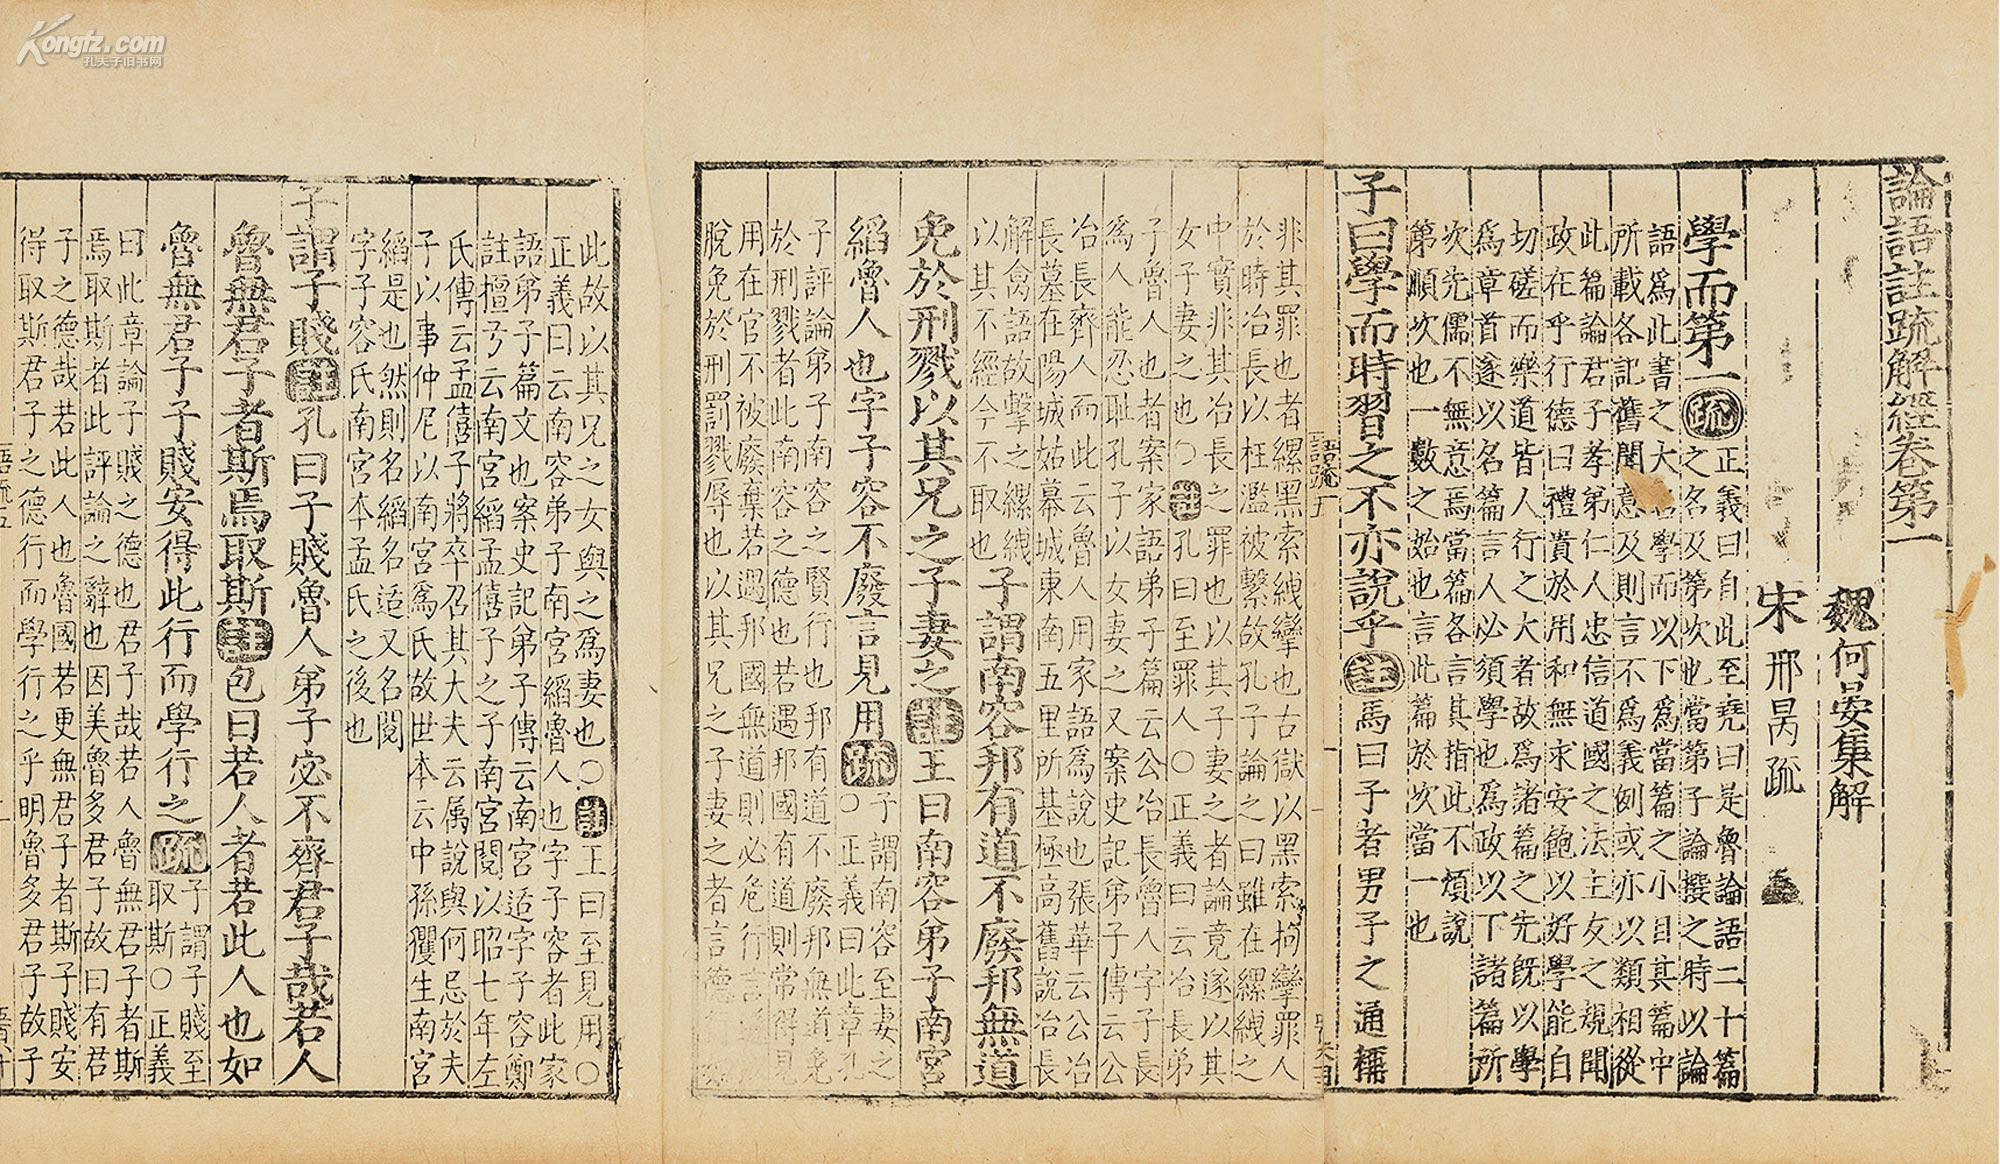 Kongfz.com
孔夫子旧书网
論語註疏解經卷第一
魏何晏集解
宋邢昺疏
學而第一疏正義曰自此至堯曰是魯論語二十篇
之名及第次也當第子論撰之時以論
語爲此書之大名學而以下爲當篇之小目其篇中
所載各記舊聞意及則言不爲義例或亦以類相從
此篇論君子孝弟仁人忠信道國之法主友之規聞
政在乎行德曰禮貴於用和無求安飽以好學能自
切磋而樂道皆人行之大者故爲諸篇之先旣以學
爲章首遂以名篇言人必須學也爲政以下諸篇所
次先儒不無意焉當篇各言其指此不煩說
第順次也一數之始也言此篇於次當一也
子曰學而時習之不亦說乎註馬曰子者男子之通稱
非其罪也者縲黑索紲攣也古獄以黑索拘攣罪人
於時冶長以枉濫被繫故孔子論之曰雖在縲紲之
中實非其冶長之罪也以其子妻之者論竟遂以其
女子妻之也○註孔曰至罪人○正義曰云冶長弟
子魯人也者案家語弟子篇云公冶長魯人字子長
爲人能忍恥孔子以女妻之又案史記弟子傳云公
冶長齊人而此云魯人用家語爲說也張華云公冶
長墓在陽城姑幕城東南五里所基極高舊說冶長
解禽語故繫之縲紲
以其不經今不取也子謂南容邦有道不廢邦無道
免於刑戮以其兄之子妻之註王曰南容弟子南宮
縚魯人也字子容不廢言見用疏子謂南容至妻之
○正義曰此章孔
子評論弟子南容之賢行也邦有道不廢邦無道免
於刑戮者此南容之德也若遇邦國有道則常得見
用在官不被廢棄若遇邦國無道則必危行言
脫免於刑罰戮辱也以其兄之子妻之者言德
此故以其兄之女與之爲妻也○註王曰至見用○
正義曰云南容弟子南宮縚魯人也字子容者此家
語弟子篇文也案史記弟子傳云南宮适字子容鄭
註檀弓云南宮縚孟僖子之子南宮閱以昭七年左
氏傳云孟僖子將卒召其大夫云属說與何忌於夫
子以事仲尼以南宮爲氏故世本云中孫玃生南宮
縚是也然則名縚名适又名閱
字子容氏南宮本孟氏之後也
子謂子賤註孔曰子賤魯人弟子宓不齊君子哉若人
魯無君子者斯焉取斯註包曰若人者若此人也如
魯無君子子賤安得此行而學行之疏子謂子賤至
取斯○正義
曰此章論子賤之德也君子哉若人魯無君子者斯
焉取斯者此評論之辭也因美魯多君子故曰有君
子之德哉若此人也魯國若更無君子者斯子賤安
得取斯君子之德行而學行之乎明魯多君子故子